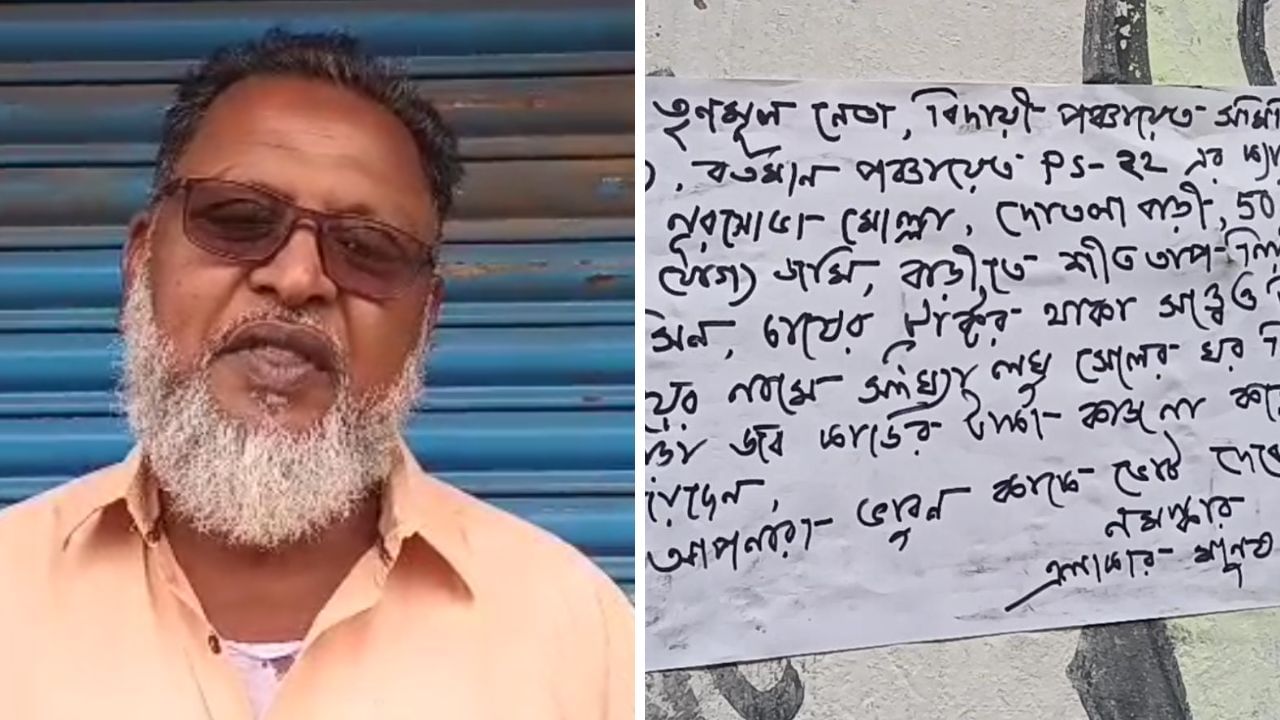 তৃণমূল নেতা, বিদায়ী পঞ্চায়েত সমিতি
, বর্তমান পঞ্চায়েত PS-22 এর
নুরমোডা মোল্লা, দোতলা বাড়ী, 50
যোগ্য জমি, বাড়ীতে শীততাপ
চাষের ট্রাক্টর থাকা সত্ত্বেও
নামে সংখ্যা লঘু সেলের ঘর
জব কার্ডের টাকা কাজ না করে
আপনারা ভাবুন কাকে ভোট দেবেন
নমস্কার
এলাকার মানুষ